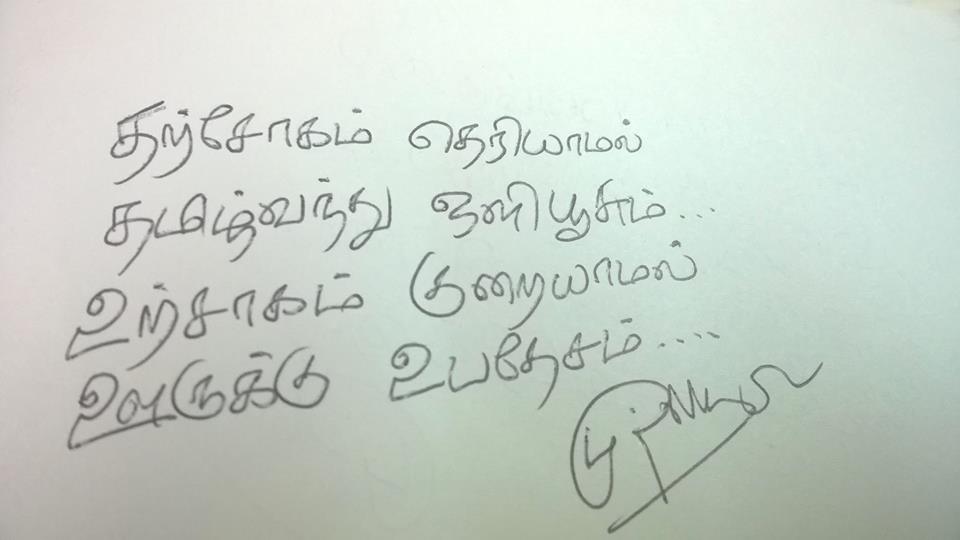 தற்சோகம் தெரியாமல்
தமிழ்வந்து ஒளிபூசும்...
உற்சாகம் குறையாமல்
ஊருக்கு உபதேசம்....